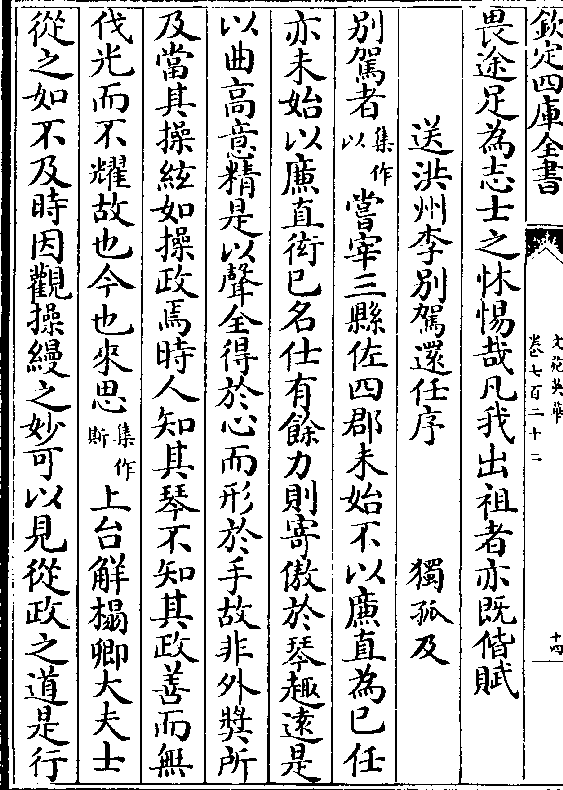 欽定四庫全書
文苑英華
卷七百二十二
十四
畏途足為志士之怵惕哉凡我出祖者亦既偕賦
送洪州李別駕還任序 獨孤及
別駕者集作以嘗宰三縣佐四郡未始不以廉直為己任
亦未始以廉直衒己名仕有餘力則寄傲於琴趣逺是
以曲高意精是以聲全得於心而形於手故非外奬所
及當其操絃如操政焉時人知其琴不知其政善而無
伐光而不耀故也今也來思集作斯上台解榻卿大夫士
從之如不及時因觀操縵之妙可以見從政之道是行